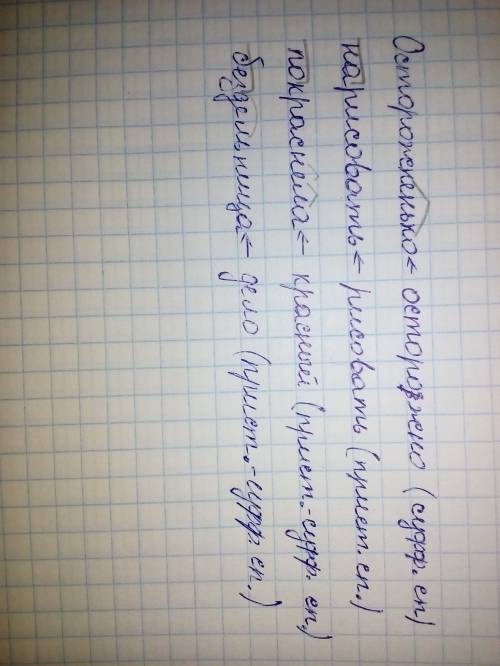 Остороженько ← осторожно (суфф. сп)
нарисовать ← рисовать (прист. сп.)
покраснела ← красный (прист.-суфф. сп.)
бездельница ← дело (прист.-суфф. сп.)